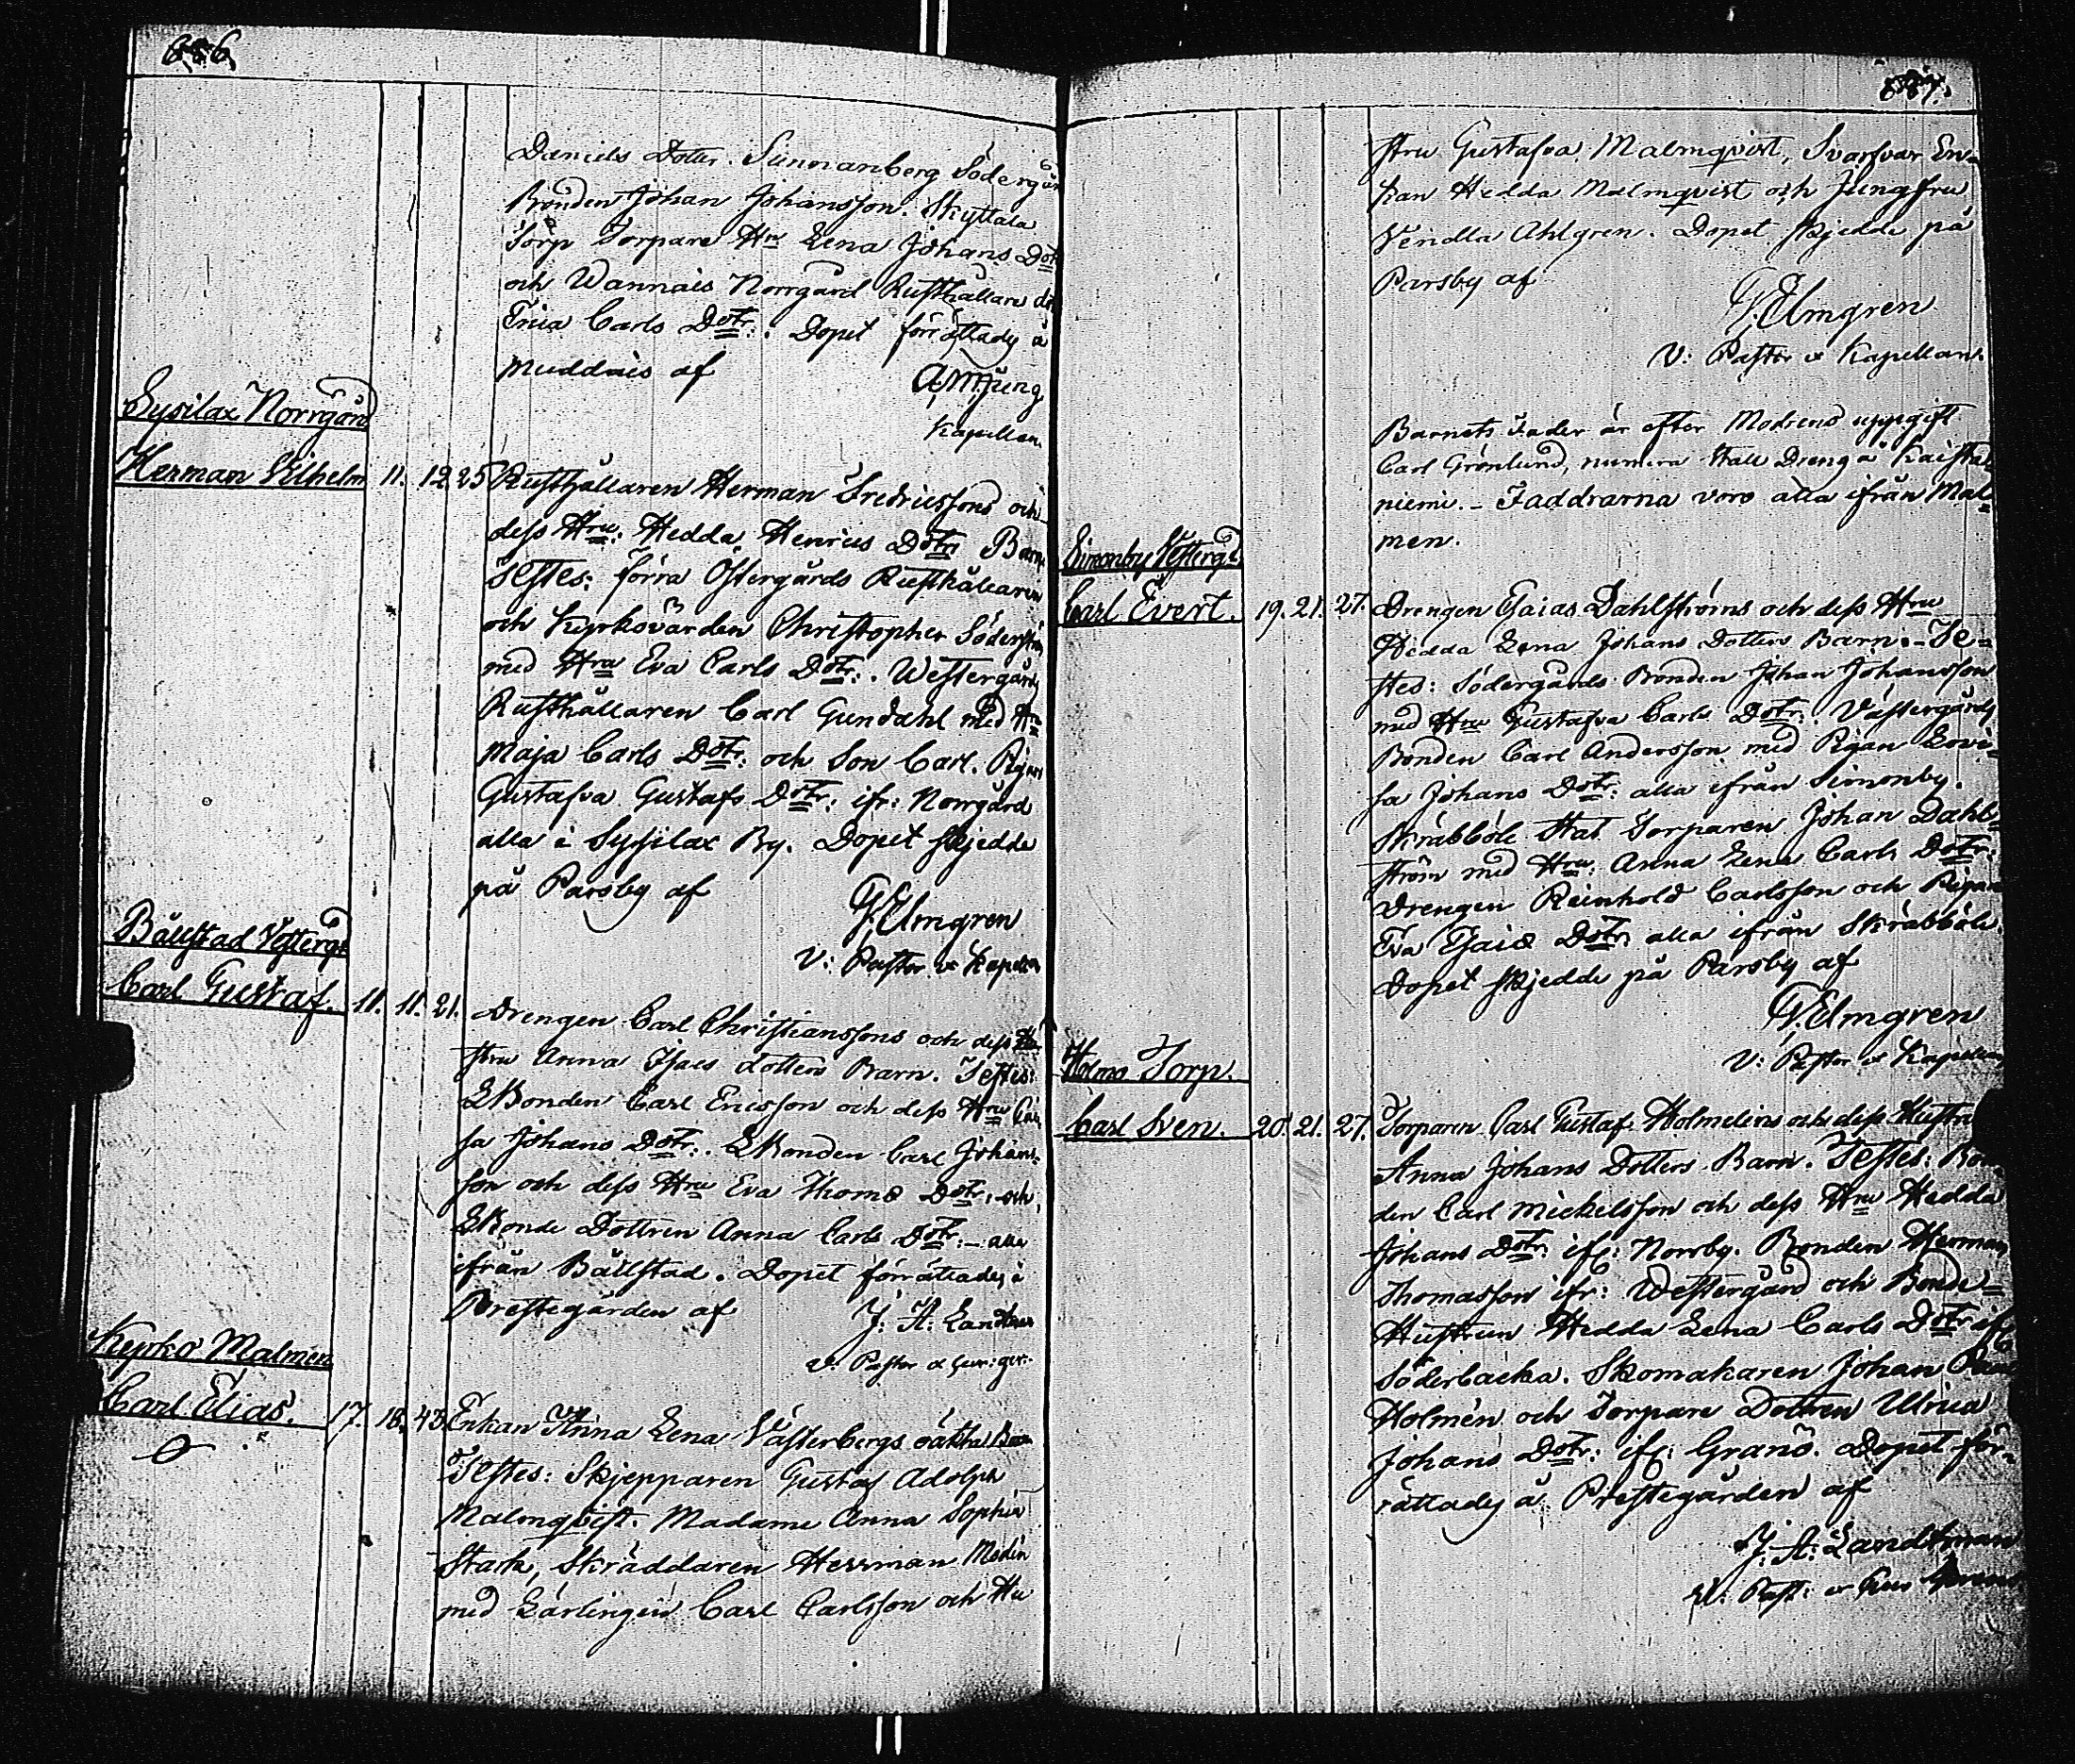 686.
Daniels Dotter. Sunnanberg Södergår
Bonden Johan Johansson. Skyttala
Torp Torpare Hru Lena Johans Dotr
och Wannais Norrgård Rusthållare do
Carls Dotr:. Dopet förrättades å
Muddais af
Ljung
Kapellan.
Sysilax Norrgård
Herman Vilhelm 11. 12. 25. Rusthållaren Herman Fredricssons och
dess Hru. Hedda Henrics Dotr: Barn.
Testes: förra Östergårds Rusthållaren
och Kyrkovärden Christopher Söderström
med Hru Eva Carls Dotr:. Westergårds
Rusthållaren Carl Gundahl med Hru
Maja Carls Dotr: och Son Carl. Pigan
Gustafva Gustafs Dotr: ifr: Norrgård
alla i Sysilax By. Dopet skjedde
på Parsby af
Elmgren
V: Pastor & Kapellan
Bällstad Vesterg:
Carl Gustaf. 11. 11. 21. Drengen Carl Christianssons och dess Hu
stru Anna Isacs dotters Barn. Testes:
Bonden Carl Ericsson och dess Hru Cai
sa Johans Dotr:. Bonden Carl Johans-
son och dess Hru Eva Thoms Dotr: och
Bonde Dottren Anna Carls Dotr: - alla
ifrån Bällstad. Dopet förrättades å
Prestegården af
J: A: Landtman
V: Pastor
Kyrko Malmen
Carl Elias. 17. 18. 43. Enkan Anna Lena Västerbergs oäkta Barn
Testes: Skjepparen Gustaf Adolph
Malmqvist. Madame Anna Sophia
Stark, Skräddaren Herrman Modin
med Lärlingen Carl Carlsson och Hu
687.
stru Gustafva Malmqvist, Svarfvar En-
kan Hedda Malmqvist och Jungfru
Vendla Ahlgren. Dopet skjedde på
Parsby af
Elmgren
V: Pastor & Kapellan.
Barnets Fader är efter Modrens uppgift
Carl Grönlund, numera Stall Dreng å Kaista
niemi. - Faddrarna voro alla ifrån Mal-
men.
Simonby Vesterg:
Carl Evert. 19. 21. 27. Drengen Esaias Dahlströms och dess Hru
Hedda Lena Johans Dotters Barn. - Te-
stes: Södergårds Bonden Johan Johansson
med Hru Gustafva Carls Dotr:. Västergårds
Bonden Carl Andersson med Pigan Lovi-
sa Johans Dotr: alla ifrån Simonby.
Skräbböle Stat Torparen Johan Dahl-
ström med Hru: Anna Lena Carls Dotr:
Drengen Reinhold Carlsson och Pigan
Eva Esaias Dotr: alla ifrån Skräbböle.
Dopet skjedde på Parsby af
Elmgren
V: Pastor & Kapellan
Holms Torp.
Carl Sven. 20. 21. 27. Torparen Carl Gustaf Holmelins och dess Hustru
Anna Johans Dotters Barn. Testes: Bon
den Carl Mickelsson och dess Hru Hedda
Johans Dotr: ifr: Norrby. Bonden Herman
Thomasson ifr: Westergård och Bonde-
Hustrun Hedda Lena Carls Dotr: ifr
Söderbacka. Skomakaren Johan
Holmén och Torpare Dottren Ulrica
Johans Dotr: ifr: Granö. Dopet för-
rättades å Prestegården af
J: A: Landtman
V: Past: